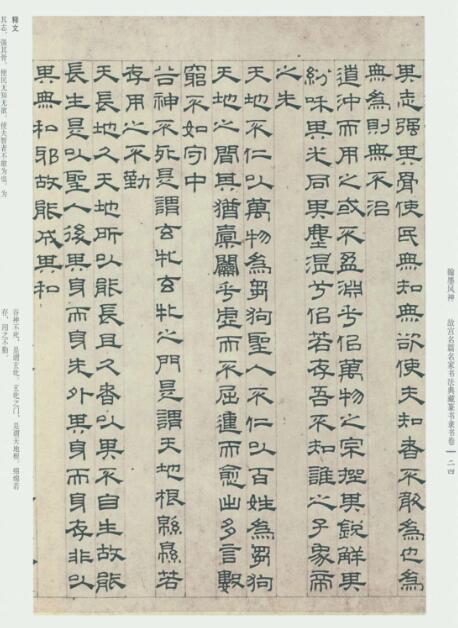 翰墨风神 故宫名篇名家书法典藏篆书隶书卷 二四
其志强其骨使民無知無欲使夫知者不敢為也為
無為則無不治
道沖而用之或不盈淵乎似萬物之宗挫其銳解其
紛咊其光同其塵湛兮似若存吾不知誰之子象帝
之先
天地不仁以萬物為芻狗聖人不仁以百姓為芻狗
天地之間其猶橐籥乎虛而不屈動而愈出多言數
窮不如守中
谷神不死是謂玄牝玄牝之門是謂天地根緜緜若
存用之不勤
天長地久天地所以能長且久者以其不自生故能
長生是以聖人後其身而身先外其身而身存非以
其無私邪故能成其私
释文
其志,强其骨,使民无知无欲,使夫智者不敢为也,为
谷神不死,是谓玄牝。玄牝之门,是谓天地根。绵绵若
存,用之不勤。